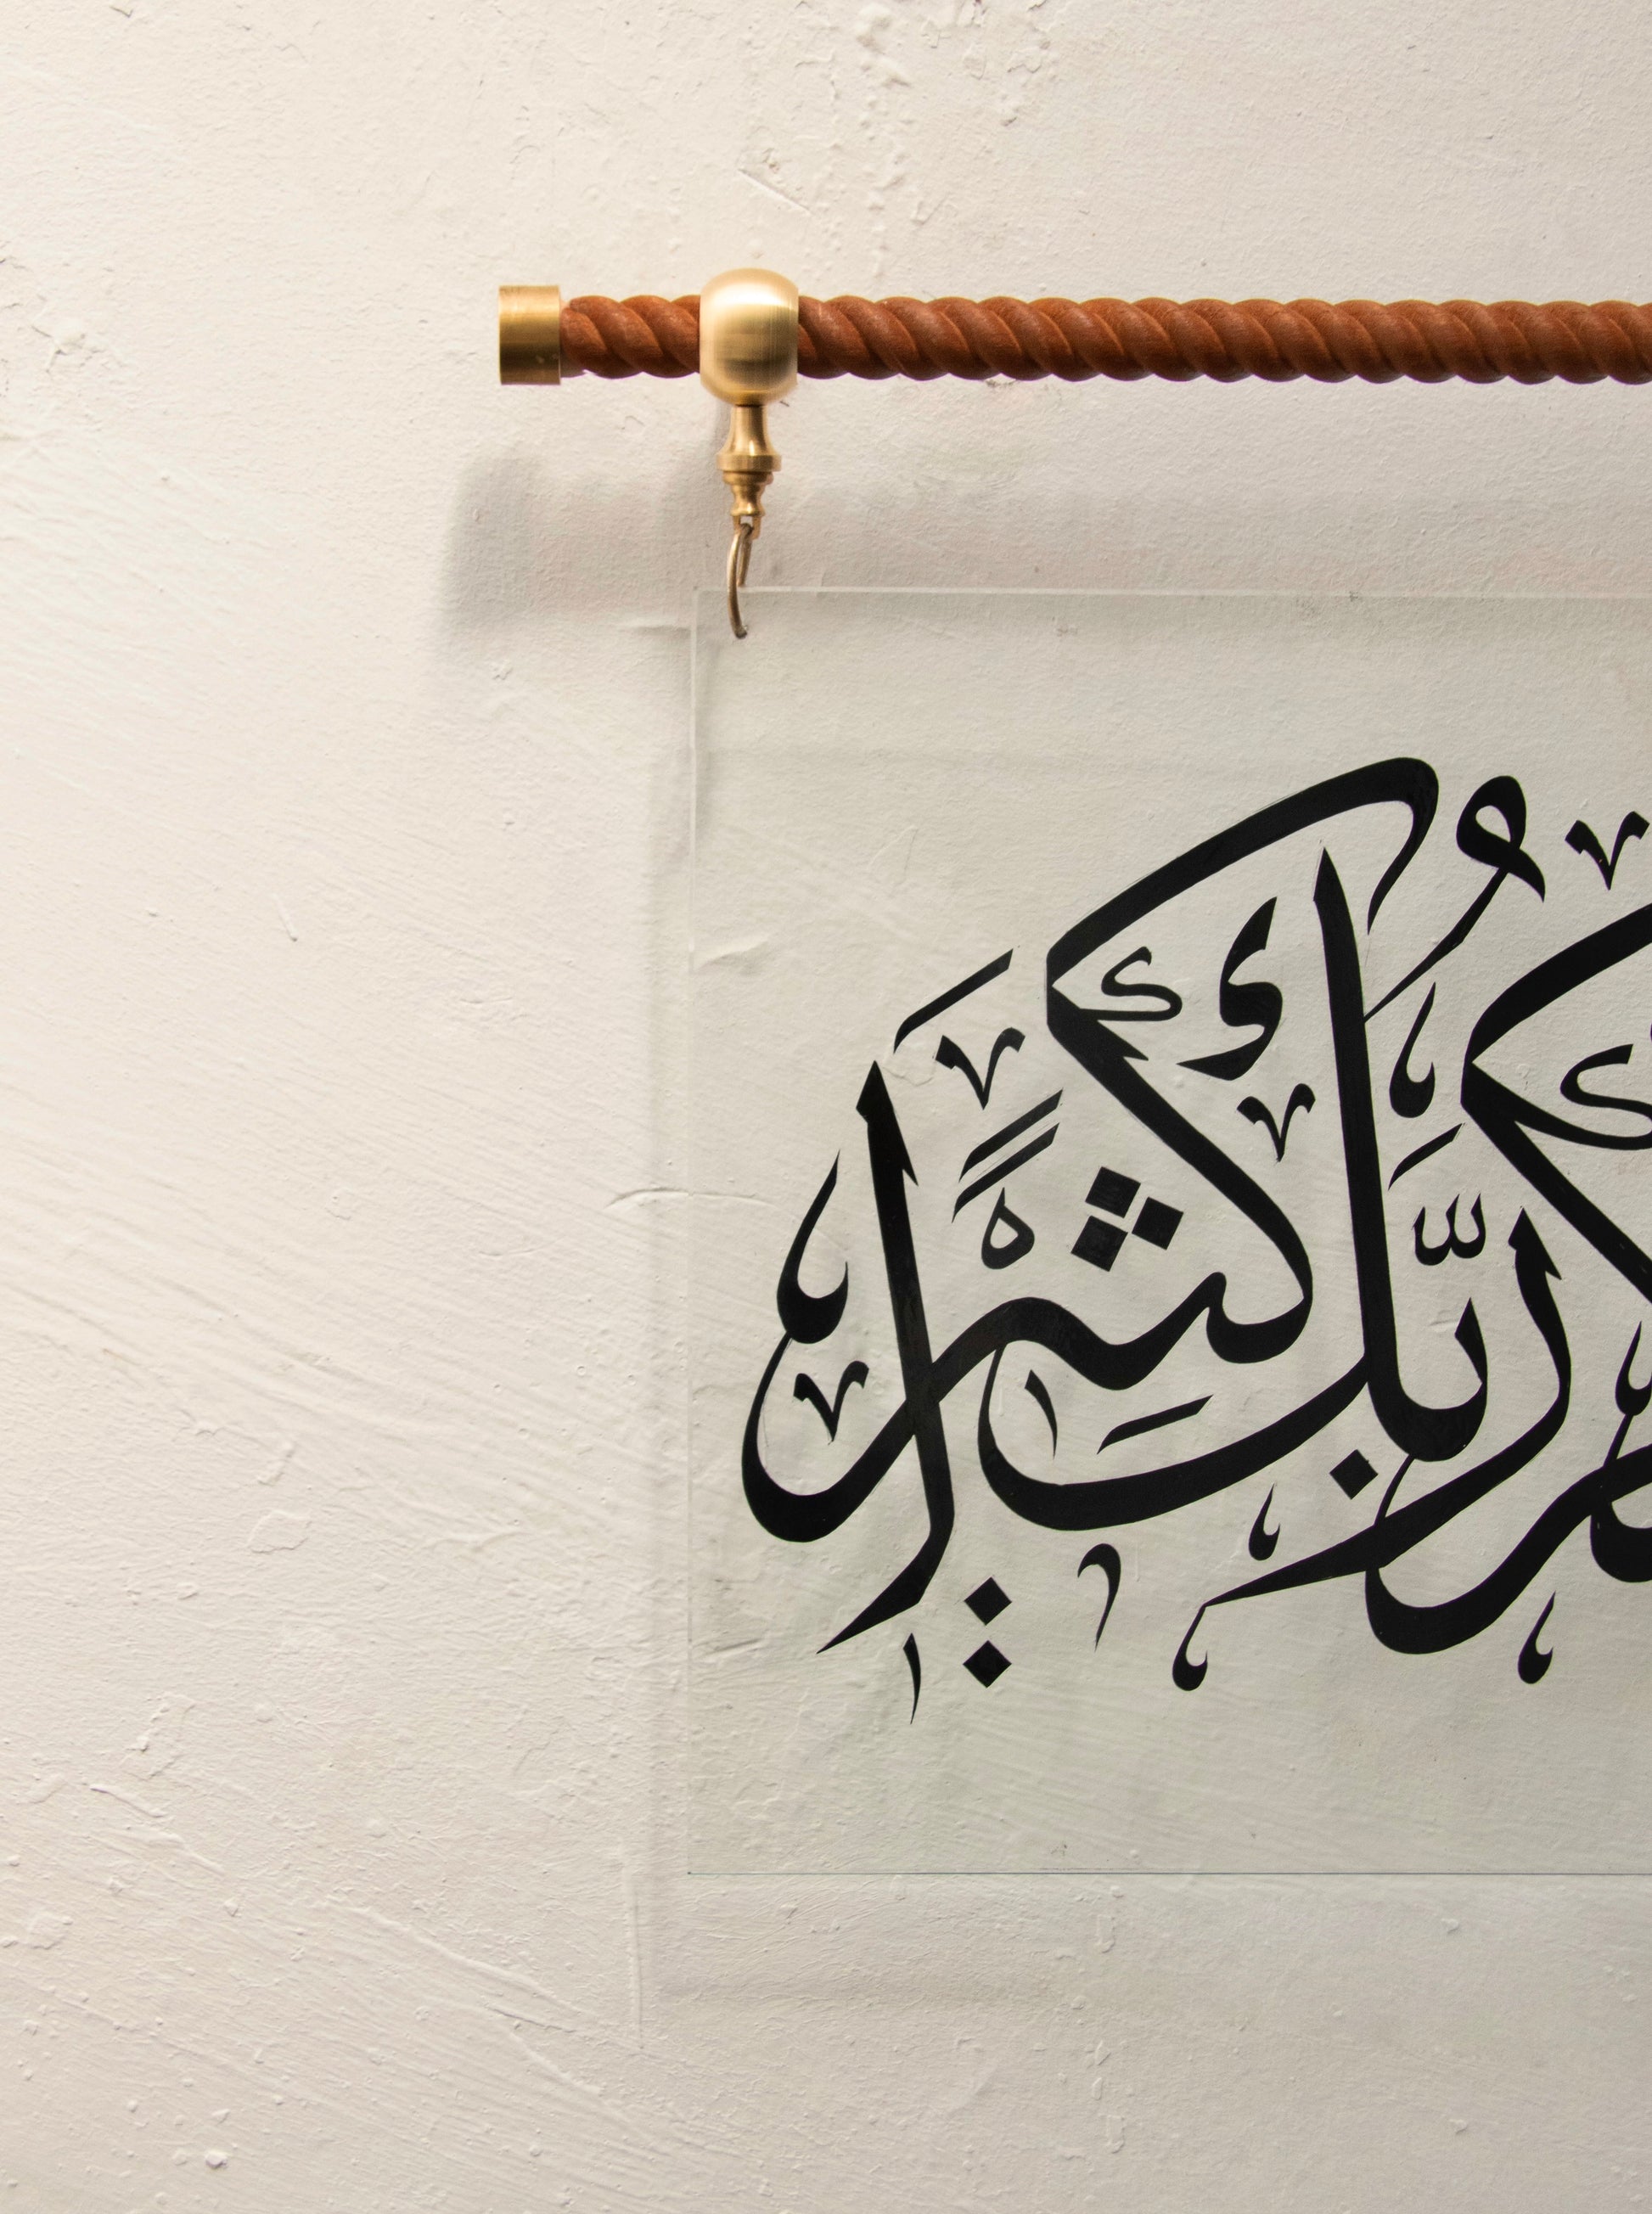 رَّبَّكَ كَثِيرًا